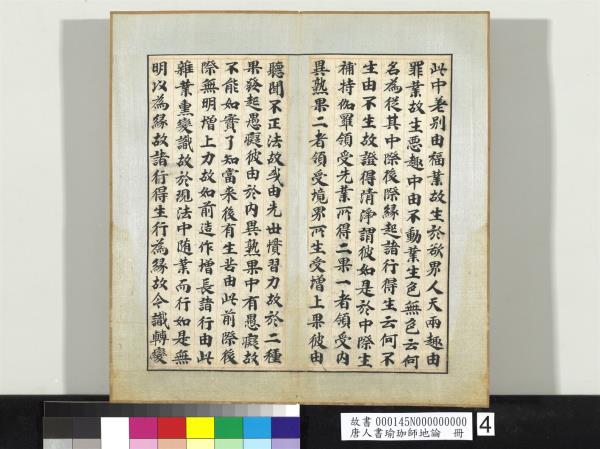 此中差別由福業故生於欲界人天兩趣由
罪業故生惡趣中由不動業生色無色云何
名為從其中際後際緣起諸行得生云何不
生由不生故證得清淨謂彼如是於中際生
補特伽羅領受先業所得二果一者領受內
異熟果二者領受境界所生受增上果彼由
聽聞不正法故或由先世慣習力故於二種
果發起愚癡彼由於內異熟果中有愚癡故
不能如實了知當來後有生苦由此前際後
際無明增上力故如前造作增長諸行由此
雜業熏變識故於現法中隨業而行如是無
明以為緣故諸行得生行為緣故令識轉變
故書 000145N000000000
唐人書瑜珈師地論 冊
4